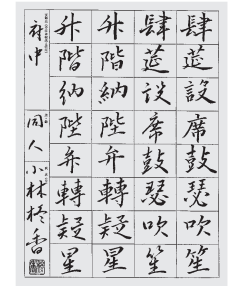 肆筵設席鼓瑟吹笙
肆筵設席鼓瑟吹笙
升階納陛弁轉疑星
升階納陛弁轉疑星
府中 同人 小林柊香